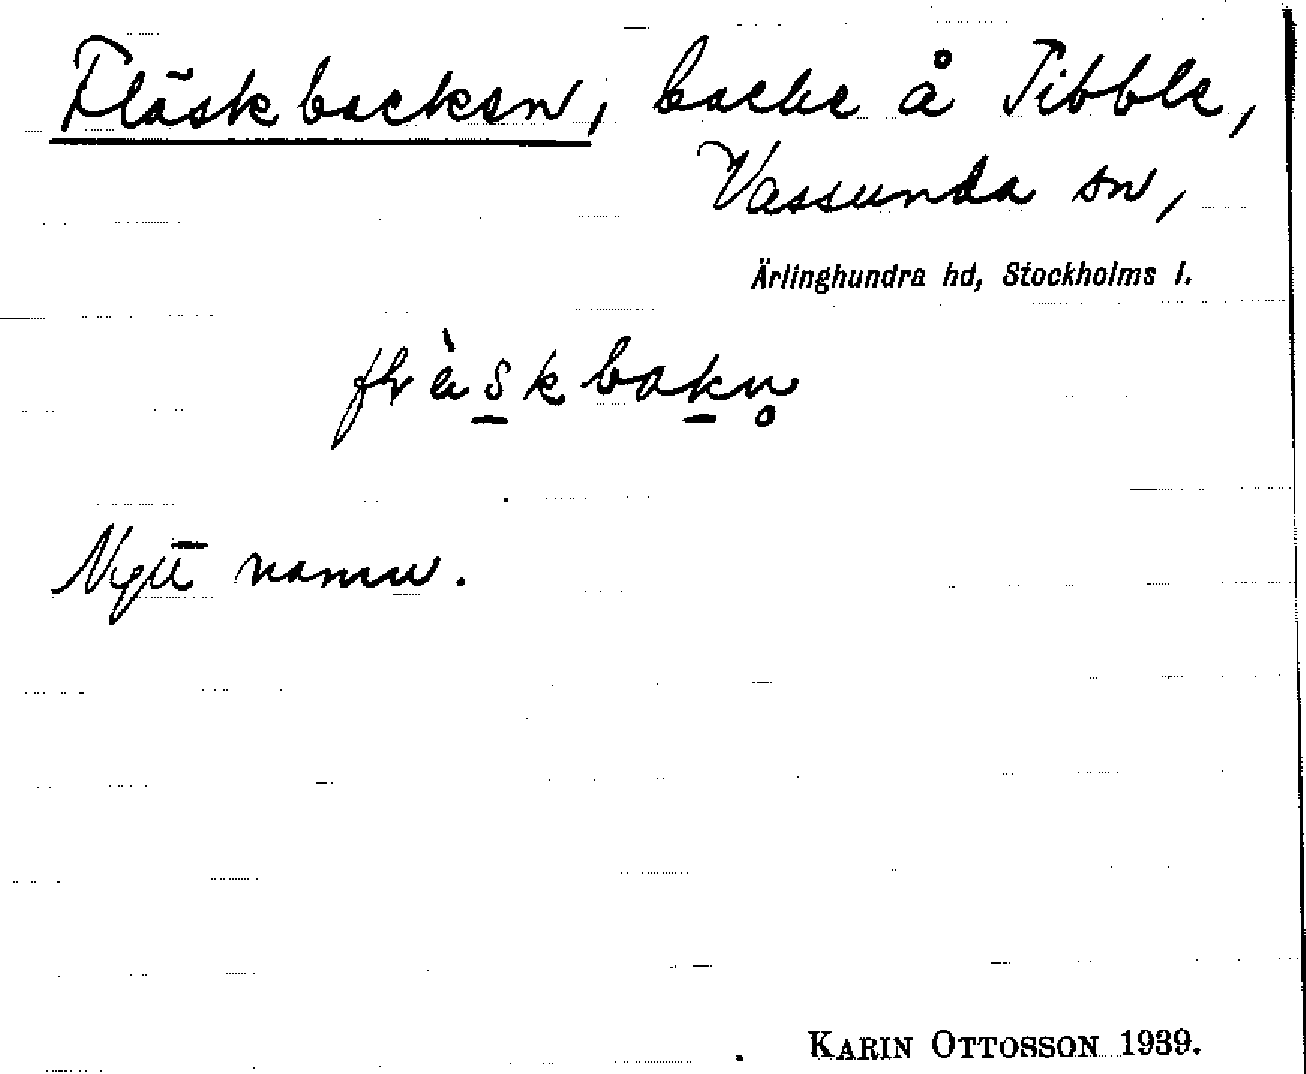 Fläskbacken, backe å Tibble,
Vassunda sn,
Ärlinghundra hd, Stockholms l.
Nytt namn.
KARIN OTTOSSON 1939.